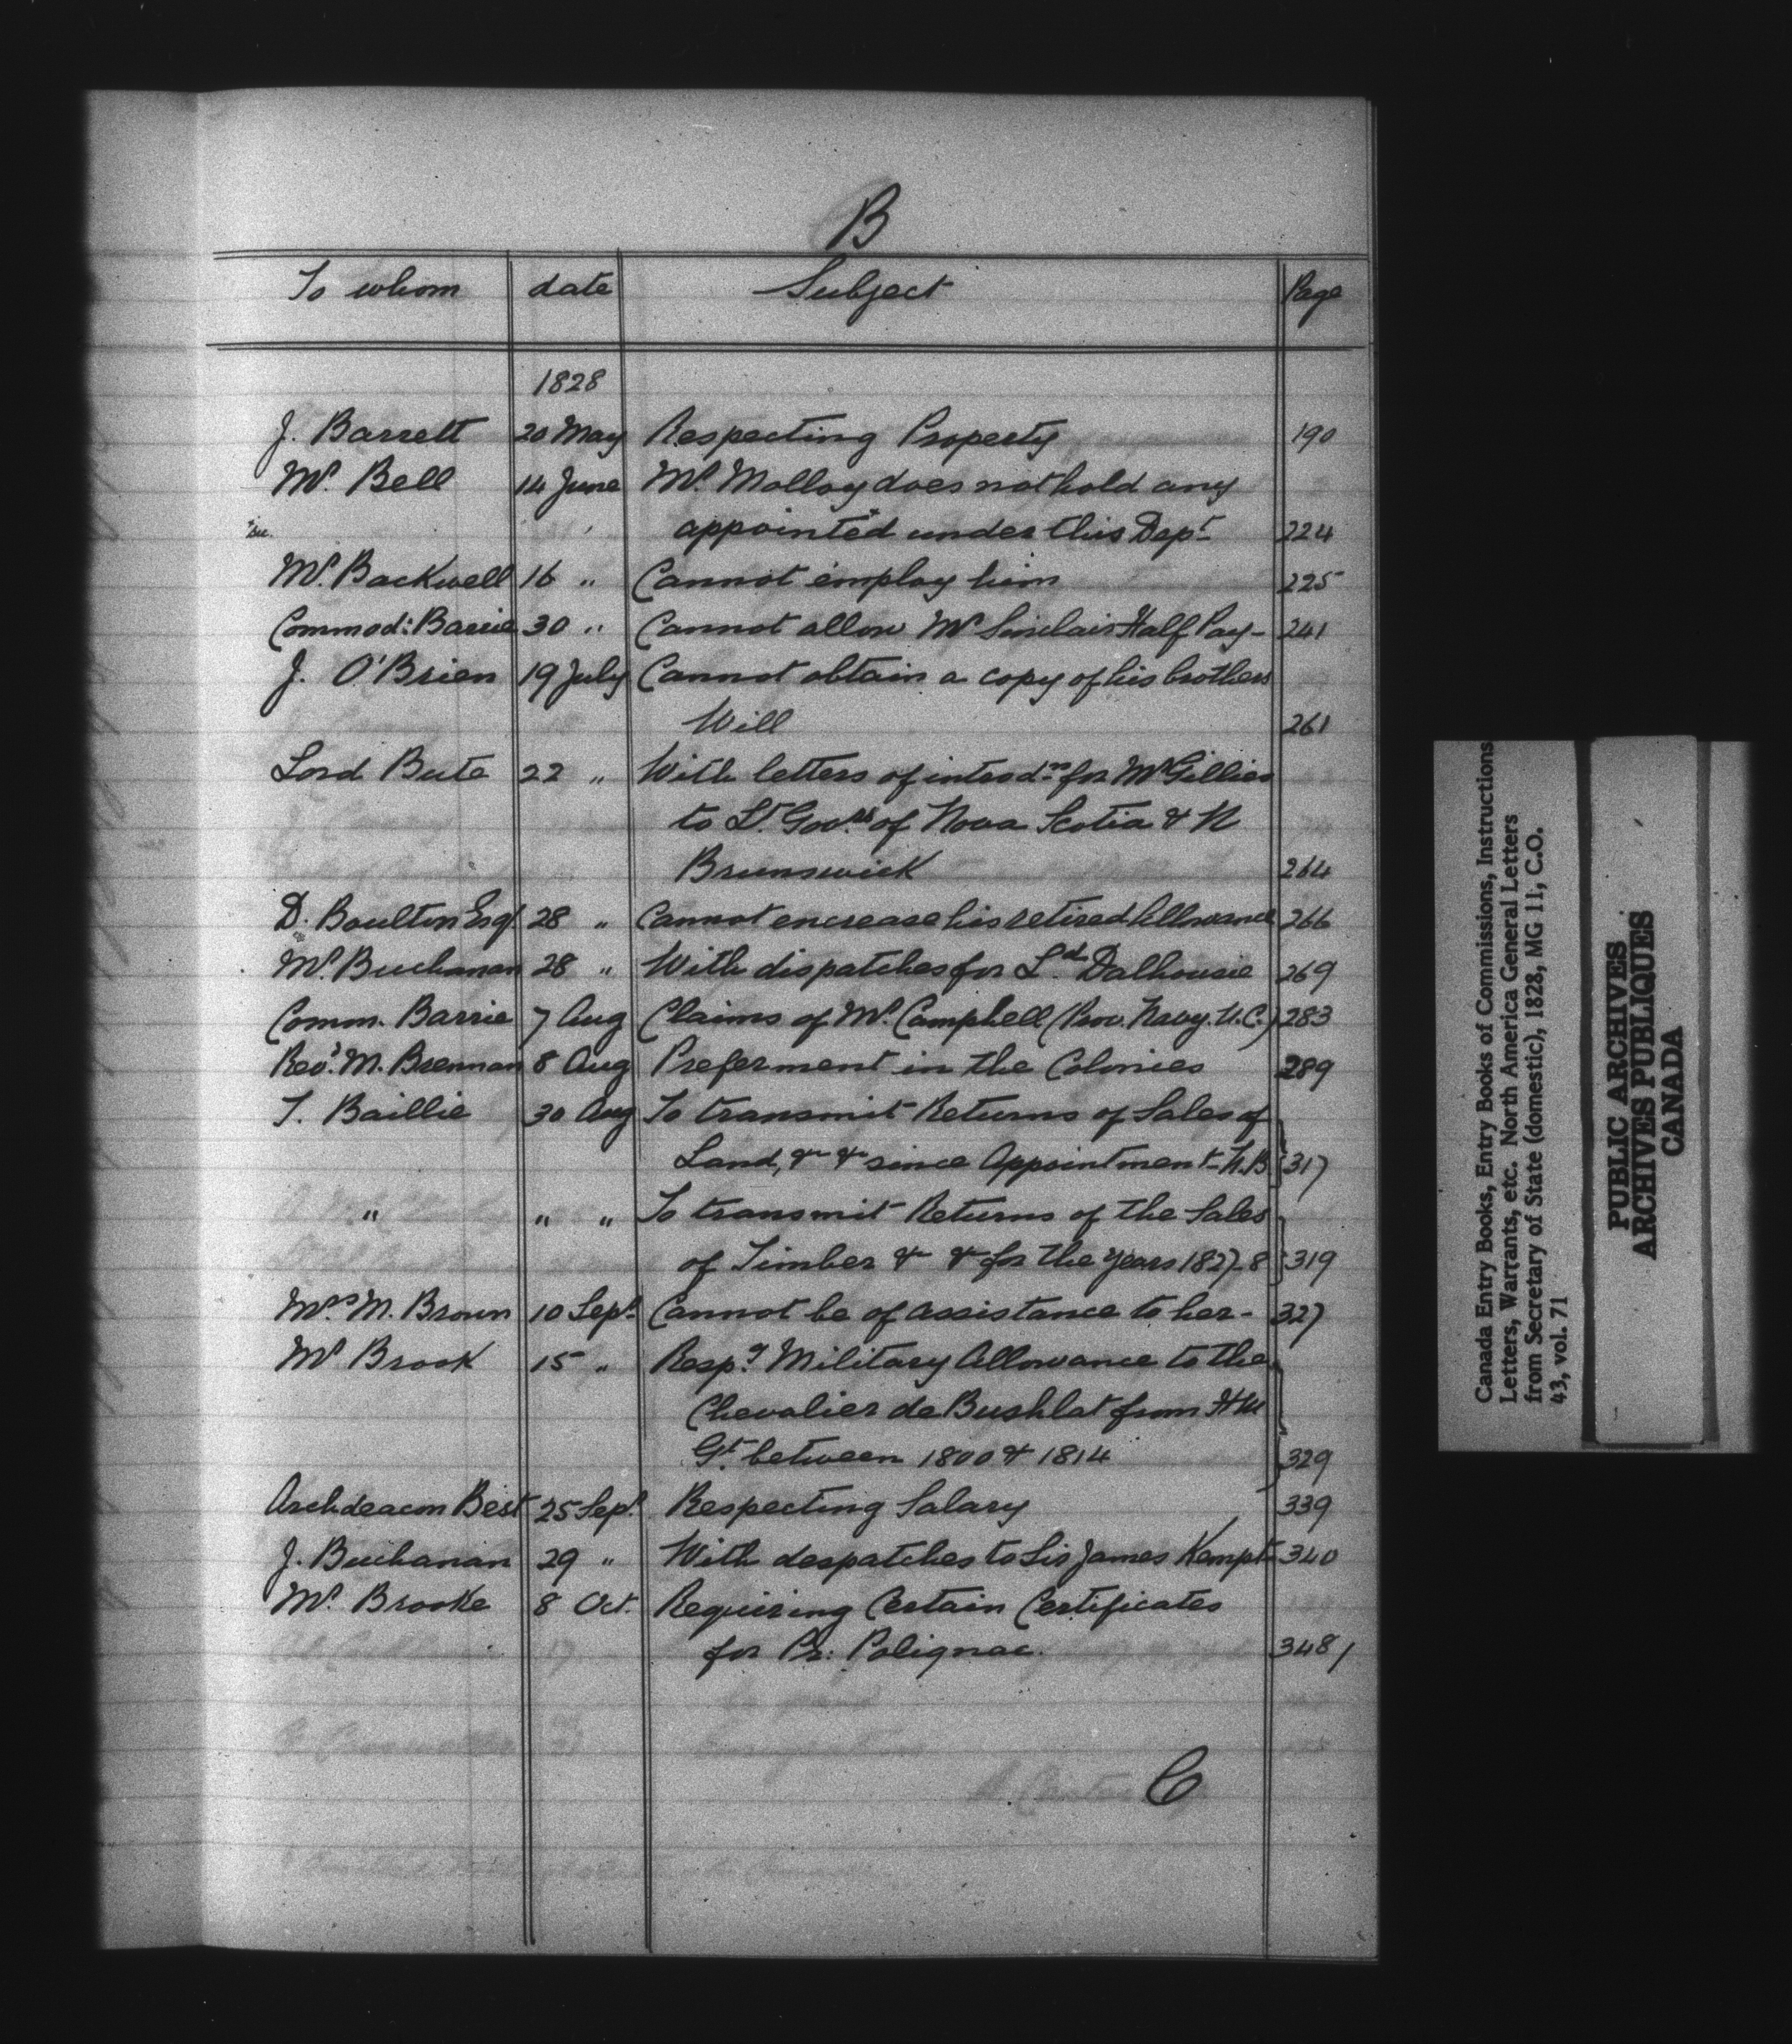 B
To whom date Subject Page
1828
J. Barrett 20 May Respecting Property 190
Mr. Bell 14 June Mr. Molloy does not hold any
appointed under this Dept 224
Mr. Backwell 16 " Cannot employ him 225
Commod: Barrie 30 " Cannot allow Mr Sinclair Half Pay- 241
J. O'Brien 19 July Cannot obtain a copy of his brothers
Will 261
Lord Bute 22 " With letters of introdns for Mr Gillies
to Lt. Govrs of Nova Scotia & N
Brunswick 264
D. Boulton Esqr. 28 " Cannot encrease his retired Allowance 266
Mr. Buchanan 28 " With dispatches for Ld. Dalhousie 269
Comm. Barrie 7 Aug Claims of Mr. Campbell (Prov. Navy. U.C.) 283
Revd. M. Brennan 8 Aug Preferment in the Colonies 289
T. Baillie 30 Aug To transmit Returns of Sales of
Land, &c &c since Appointment- N.B 317
" " " To transmit Returns of the Sales
of Timber &c &c for the years 1827-8 319
Mrs M. Brown 10 Sept. Cannot be of assistance to her- 327
Mr Brook 15 " Respg. Military Allowance to the
Chevalier de Bushlat from HM
Gt. between 1800 & 1814 329
Archdeacon Best 25 Sept. Respecting Salary 339
J. Buchanan 29 " With despatches to Sir James Kempt 340
Mr. Brooke 8 Oct. Requiring Certain Certificates
for Pr: Polignac. 348/
C
Canada Entry Books, Entry Books of Commissions, Instructions
Letters, Warrants, etc. North America General Letters
from Secretary of State (domestic), 1828, MG 11, C.O.
43, vol. 71
PUBLIC ARCHIVES
ARCHIVES PUBLIQUES
CANADA